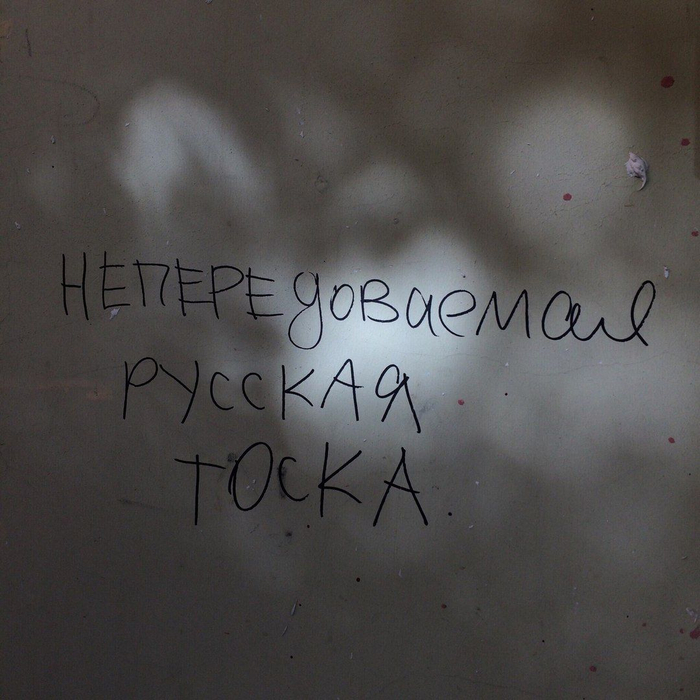 НЕПЕРЕдоваемая
РУССКАЯ
ТОСКА.